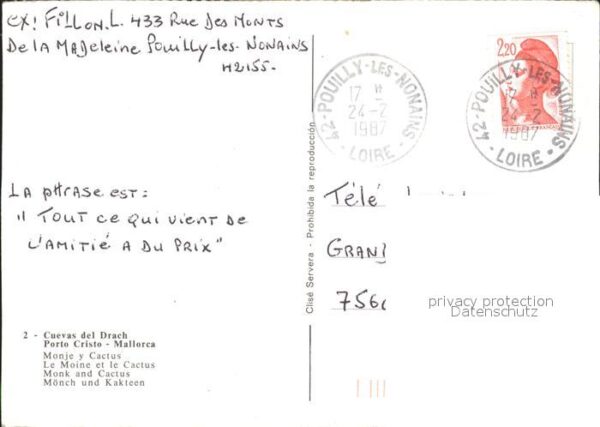 EX! FiLLON.L. 433 RUE DES MONTS
De LA MADeLeiNe POUiLLY-Les-NONAiNS
42155-
LA PHRASE EST:
" TOUT Ce QUi VieNT De
L'AMiTié A DU PRiX "
2 - Cuevas del Drach
Porto Cristo - Mallorca
Monje y Cactus
Le Moine et le Cactus
Monk and Cactus
Mönch und Kakteen
Clisé Servera - Prohibida la reproducción
2,20
42-POUILLY-LES-NONAINS
17 H
24-2
1987
- LOIRE -
42-POUILLY-LES-NONAINS
17 H
24-2
1987
- LOIRE -
TéLé
GRAN
756
privacy protection
Datenschutz